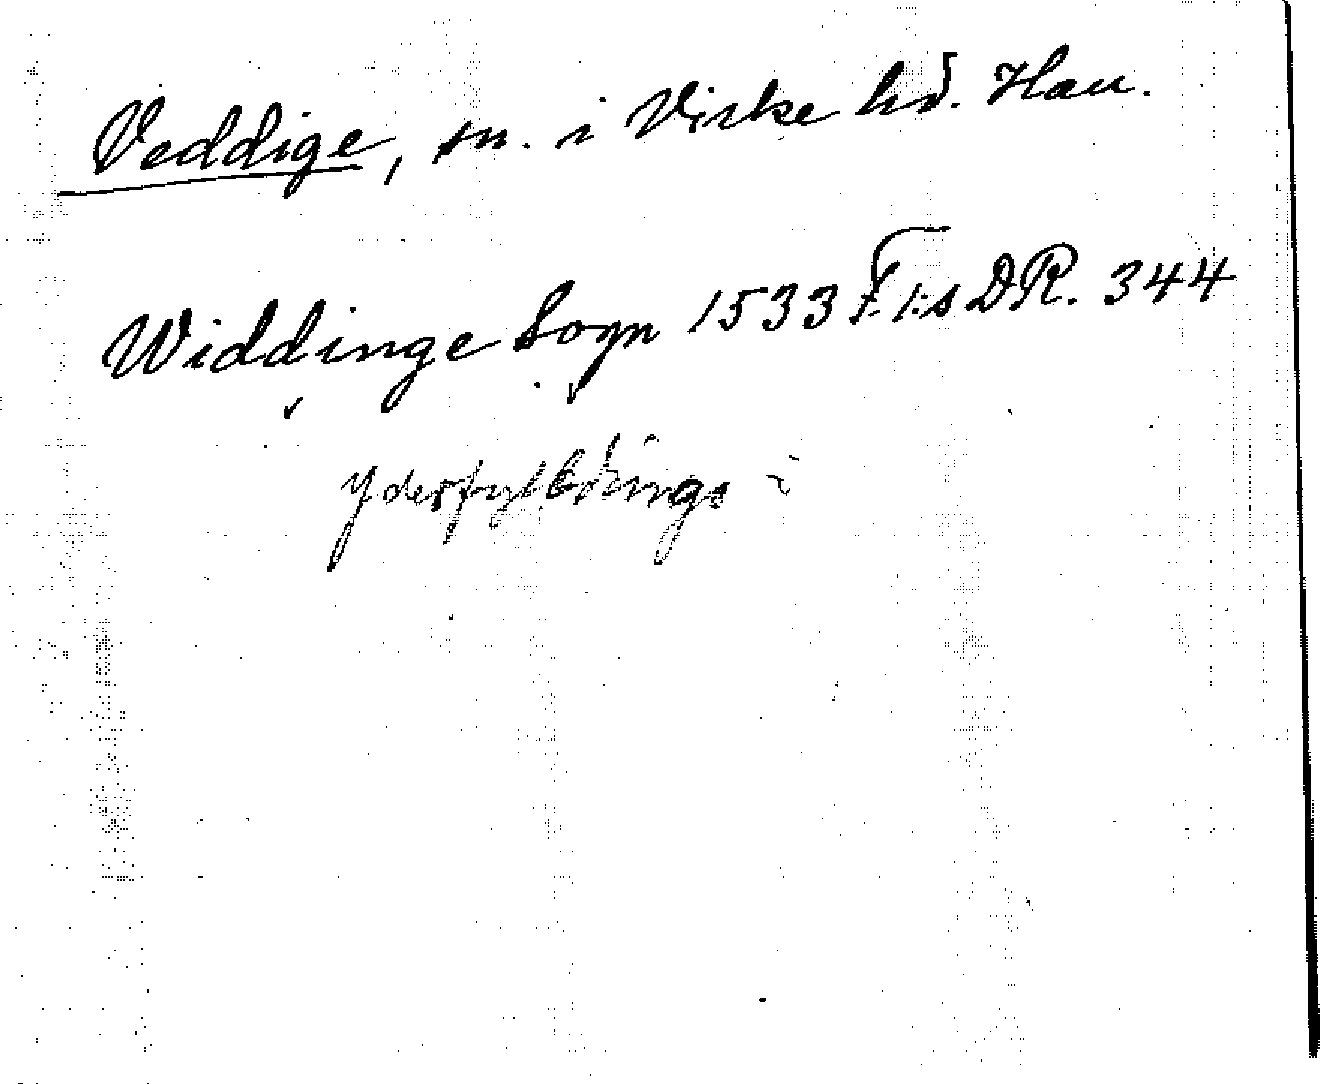 Veddige, sn. i Viske hd. Hall.
Widdinge Sogn 1533 F. I:s DR. 344